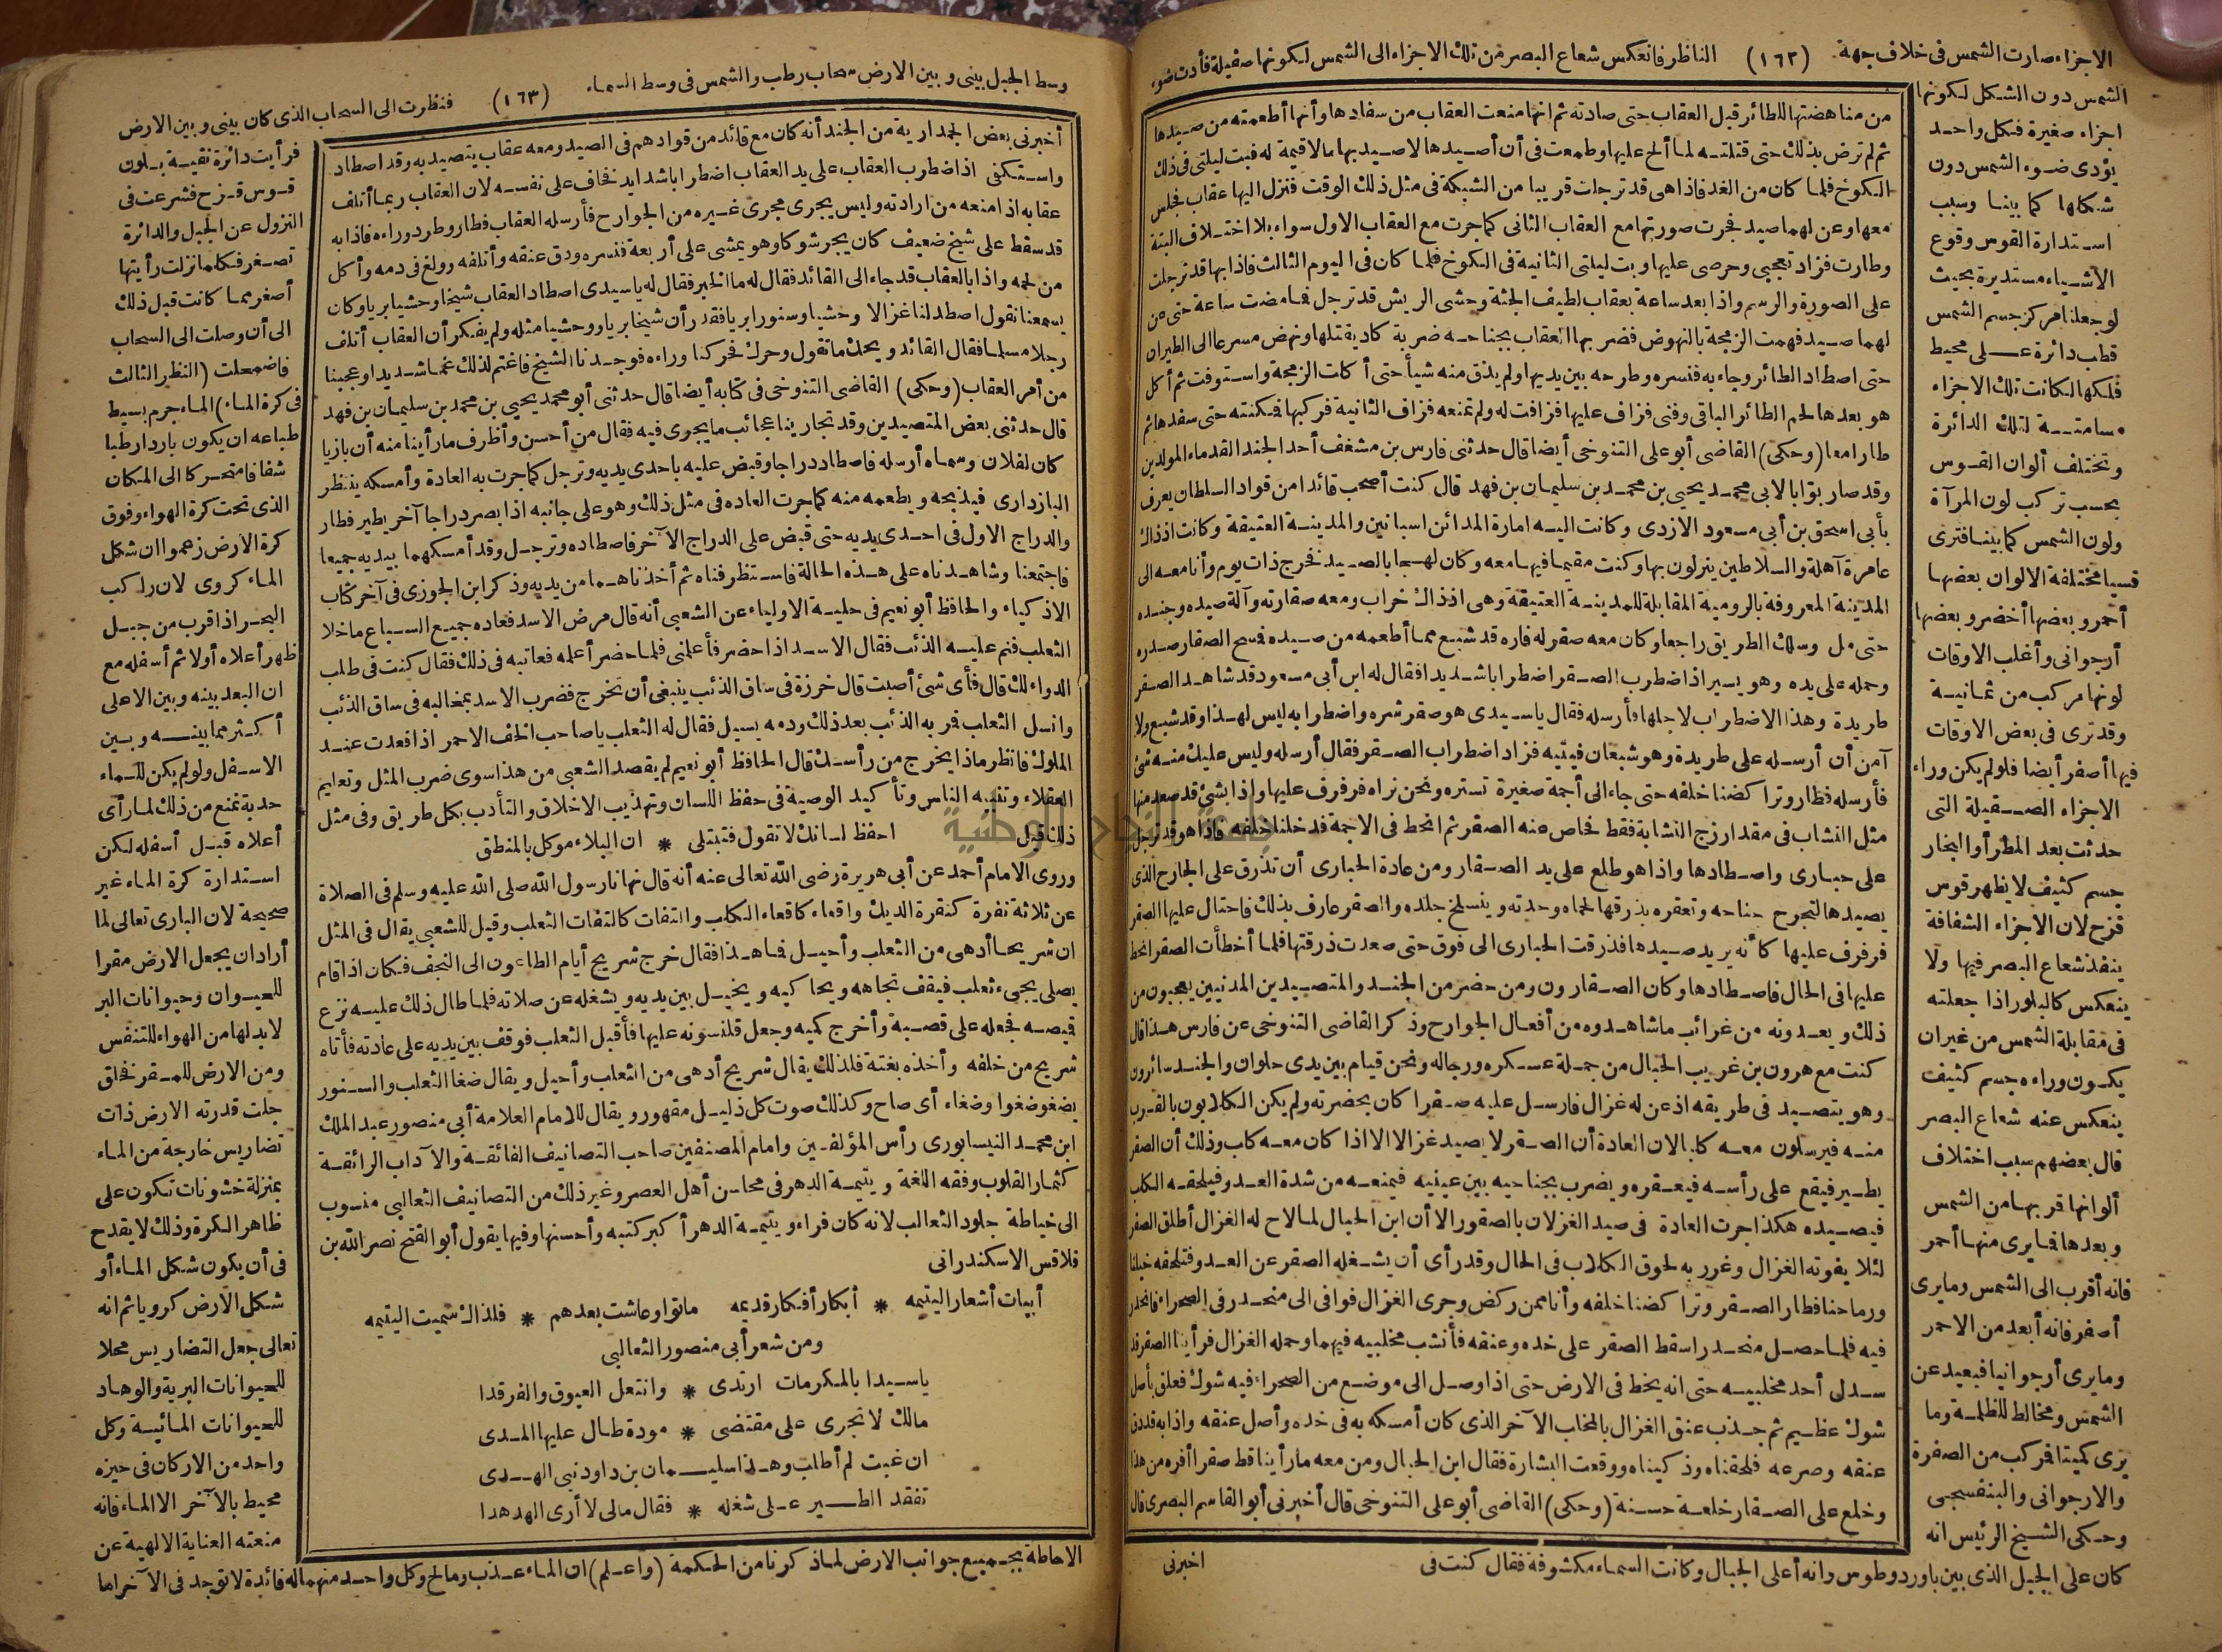 الاجزاء صارت الشمس فى خلاف جهة (١٦٢) الناظر فانعكس شعاع البصر من تلك الاجزاء الى الشمس لكونها صقيلة فأدت ضوء
الشمس دون الشكل لكونها
اجزاء صغيرة فكل واحد
يؤدى ضوء الشمس دون
شكلها كما بينا وسبب
استدارة القوس وقوع
الاشياء مستديرة بحيث
لو جعلنا مركز جسم الشمس
قطب دائرة على محيط
فلكها لكانت تلك الاجزاء
مسامتة لتلك الدائرة
وتختلف ألوان القوس
بحسب تركب لون المرآة
ولون الشمس كما بينا فترى
قسيا مختلفة الالوان بعضها
أحمر وبعضها أخضر وبعضها
أرجوانى وأغلب الاوقات
لونها مركب من ثمانية
وقد ترى فى بعض الاوقات
فيها أصفر أيضا فلو لم يكن وراء
الاجزاء الصقيلة التى
حدثت بعد المطر أو البخار
جسم كثيف لا يظهر قوس
قزح لان الاجزاء الشفافة
ينفذ شعاع البصر فيها ولا
ينعكس كالبلور اذا جعلته
فى مقابلة الشمس من غير ان
يكون وراءه جسم كثيف
ينعكس عنه شعاع البصر
قال بعضهم سبب اختلاف
ألوانها قربها من الشمس
وبعدها فما يرى منها أحمر
فانه أقرب الى الشمس وما يرى
أصفر فانه أبعد من الاحمر
وما يرى أرجوانيا فبعيد عن
الشمس ومخالط للظلمة وما
يرى كميتا فركب من الصفرة
والارجوانى والبنفسجى
وحكى الشيخ الرئيس انه
كان على الجبل الذى بين باورد وطوس وانه أعلى الجبال وكانت السماء مكشوفة فقال كنت فى
من مناهضتها للطائر قبل العقاب حتى صادته ثم انها منعت العقاب من سفادها وأنها أطعمته من صيدها
ثم لم ترض بذلك حتى قتلته لما ألح عليها وطمعت فى أن أصيدها لاصيد بها ما لا قيمة له فبت ليلتى فى ذلك
الكوخ فلما كان من الغد فاذا هى قد ترجلت قريبا من الشبكة فى مثل ذلك الوقت فنزل اليها عقاب فجلس
معها وعن لهما صيد فجرت صورتها مع العقاب الثانى كما جرت مع العقاب الاول سواء بلا اختلاف البتة
وطارت فزاد تعجبى وحرصى عليها وبت ليلتى الثانية فى الكوخ فلما كان فى اليوم الثالث فاذا بها قد ترجلت
على الصورة والرسم واذا بعد ساعة بعقاب لطيف الجثة وحشى الريش قد ترجل فما مضت ساعة حتى عن
لهما صيد فهمت الزمجة بالنهوض فضربها العقاب بجناحه ضربة كاد يقتلها ونهض مسرعا الى الطيران
حتى اصطاد الطائر وجاء به فنسره وطرحه بين يديها ولم يذق منه شيأ حتى أكلت الزمجة واستوفت ثم أكل
هو بعدها لحم الطائر الباقى وفنى فزاف عليها فزافت له ولم تمنعه فزاف الثانية فركبها فكنته حتى سفدها ثم
طارا معا (وحكى) القاضى أبو على التنوخى أيضا قال حدثنى فارس بن مشغف أحد الجند القدماء المولدين
وقد صار بوابا لابى محمد يحيى بن محمد بن سليمان بن فهد قال كنت أصحب قائدا من قواد السلطان يعرف
بأبى اسحق بن أبى مسعود الازدى وكانت اليه امارة المدائن اسبانين والمدينة العتيقة وكانت اذذاك
عامرة آهلة والسلاطين ينزلون بها وكنت مقيما فيها معه وكان لهجا بالصيد فخرج ذات يوم وأنا معه الى
المدينة المعروفة بالرومية المقابلة للمدينة العتيقة وهى اذذاك خراب ومعه صقارته وآلة صيده وجنده
حتى مل وسلك الطريق راجعا وكان معه صقر له فاره قد شبع مما أطعمه من صيده فمسح الصقار صدره
وحمله على يده وهو يسير اذ اضطرب الصقر اضطرابا شديدا فقال له ابن أبى مسعود قد شاهد الصقر
طريدة وهذا الاضطراب لاجلها فأرسله فقال ياسيدى هو صقر شره واضطرابه ليس لهذا وقد شبع ولا
آمن أن أرسله على طريدة وهو شبعان فيتيه فزاد اضطراب الصقر فقال أرسله وليس عليك منه شئ
فأرسله فطار وتراكضنا خلفه حتى جاء الى أجمة صغيرة تستره ونحن نراه فرفرف عليها واذا بشئ قد صعد منها
مثل النشاب فى مقدار زج النشابة فقط فحاص عنه الصقر ثم انحط فى الاجمة فدخلنا خلفه فاذا هو قد ترجل
على حبارى واصطادها واذا هو طلع على يد الصقار ومن عادة الحبارى أن تذرق على الجارح الذى
يصيدها لتجرح جناحه وتعقره بذرقها لحماه وحدته وينسلخ جلده والصقر عارف بذلك فاحتال عليها الصقر
فرفرف عليها كأنه يريد صيدها فذرقت الحبارى الى فوق حتى صعدت ذرقتها فلما أخطأت الصقر انحط
عليها فى الحال فاصطادها وكان الصقارون ومن حضر من الجند والمتصيدين المدنيين يعجبون من
ذلك ويعدونه من غرائب ما شاهدوه من أفعال الجوارح وذكر القاضى التنوخى عن فارس هذا قال
كنت مع هرون بن غريب الحبال من جملة عسكره ورجاله ونحن قيام بين يدى حلوان والجند سائرون
وهو يتصيد فى طريقه اذ عن له غزال فارسل عليه صقرا كان بحضرته ولم يكن الكلابون بالقرب
منه فيرسلون معه كلبا لان العادة أن الصقر لا يصيد غزالا الا اذا كان معه كلب وذلك أن الصقر
يطير فيقع على رأسه فيعقره ويضرب بجناحيه بين عينيه فيمنعه من شدة العدو فيلحقه الكلب
فيصيده هكذا جرت العادة فى صيد الغزلان بالصقور الا أن ابن الحبال لما لاح له الغزال أطلق الصقر
لئلا يفوته الغزال وغرر به لحوق الكلاب فى الحال وقدر أى أن يشغله الصقر عن العدو فتلحقه خيلنا
ورماحنا فطار الصقر وتراكضنا خلفه وأنا ممن ركض وجرى الغزال فوافى الى منحدر فى الصحراء فانحدر
فيه فلما حصل منحدرا سقط الصقر على خده وعنقه فأنشب مخلبيه فيهما وحمله الغزال فرأينا الصقر قد
سدل أحد مخلبيه حتى انه يخط فى الارض حتى اذا وصل الى موضع من الصحراء فيه شوك فعلق بأصل
شوك عظيم ثم جذب عنق الغزال بالمخلب الآخر الذى كان أمسكه به فى خده وأصل عنقه واذا به قد دق
عنقه وصرعه فلحقناه وذكيناه ووقعت البشارة فقال ابن الحبال ومن معه ما رأينا قط صقرا أفره من هذا
وخلع على الصقار خلعة حسنة (وحكى) القاضى أبو على التنوخى قال أخبرنى أبو القاسم البصرى قال
اخبرنى
وسط الجبل بينى وبين الارض سحاب رطب والشمس فى وسط السماء (١٦٣) فنظرت الى السحاب الذى كان بينى وبين الارض
أخبرنى بعض الجدارية من الجند أنه كان مع قائد من قوادهم فى الصيد ومعه عقاب يتصيد به وقد اصطاد
واستكفى اذ اضطرب العقاب على يد العقاب اضطرابا شديدا يخاف على نفسه لان العقاب ربما أتلف
عقابه اذا منعه من ارادته وليس يجرى مجرى غيره من الجوارح فأرسله العقاب فطار وطرد وراءه فاذا به
قد سقط على شيخ ضعيف كان يجر شوكا وهو يمشى على أربعة فنسره ودق عنقه وأتلفه وولغ فى دمه وأكل
من لحمه واذا بالعقاب قد جاء الى القائد فقال له ما الخبر فقال له ياسيدى اصطاد العقاب شيخا وحشيا بريا وكان
يسمعنا نقول اصطد لنا غزالا وحشيا وسنورا بريا فقدر أن شيخا بريا ووحشيا مثله ولم يفكر أن العقاب أتلف
رجلا مسلما فقال القائد ويحك ما تقول وحرك فحركنا وراءه فوجدنا الشيخ فاغتم لذلك غما شديدا وعجبنا
من أمر العقاب (وحكى) القاضى التنوخى فى كتابه أيضا قال حدثنى أبو محمد يحيى بن محمد بن سليمان بن فهد
قال حدثنى بعض المتصيدين وقد تجارينا عجائب ما يجرى فيه فقال من أحسن وأظرف ما رأينا منه أن بازيا
كان لفلان وسماه أرسله فاصطاد دراجا وقبض عليه باحدى يديه وترجل كما جرت به العادة وأمسكه ينتظر
البازدارى فيذبحه ويطعمه منه كما جرت العاده فى مثل ذلك وهو على جانبه اذا بصر دراجا آخر يطير فطار
والدراج الاول فى احدى يديه حتى قبض على الدراج الآخر فاصطاده وترجل وقد أمسكهما بيديه جميعا
فاجتمعنا وشاهدناه على هذه الحالة فاستنظرفناه ثم أخذناهما من يديه وذكر ابن الجوزى فى آخر كتاب
الاذكياء والحافظ أبو نعيم فى حلية الاولياء عن الشعبى أنه قال مرض الاسد فعاده جميع السباع ما خلا
الثعلب فنم عليه الذئب فقال الاسد اذا حضر فأعلمنى فلما حضر أعلمه فعاتبه فى ذلك فقال كنت فى طلب
الدواء لك قال فأى شئ أصبت قال خرزة فى ساق الذئب ينبغى أن تخرج فضرب الاسد بمخالبه فى ساق الذئب
وانسل الثعلب فمر به الذئب بعد ذلك ودمه يسيل فقال له الثعلب ياصاحب الخف الاحمر اذا قعدت عند
الملوك فانظر ماذا يخرج من رأسك قال الحافظ أبو نعيم لم يقصد الشعبى من هذا سوى ضرب المثل وتعليم
العقلاء وتنبيه الناس وتأكيد الوصية فى حفظ اللسان وتهذيب الاخلاق والتأدب بكل طريق وفى مثل
ذلك قيل احفظ لسانك لا تقول فتبتلى * ان البلاء موكل بالمنطق
وروى الامام أحمد عن أبى هريرة رضى الله تعالى عنه أنه قال نهانا رسول الله صلى الله عليه وسلم فى الصلاة
عن ثلاثة نقرة كنقرة الديك واقعاء كاقعاء الكلب والتفات كالتفات الثعلب وقيل للشعبى يقال فى المثل
ان شريحا أدهى من الثعلب وأحيل فما هذا فقال خرج شريح أيام الطاعون الى النجف فكان اذا قام
يصلى يجىء ثعلب فيقف تجاهه ويحاكيه ويخيل بين يديه ويشغله عن صلاته فلما طال ذلك عليه نزع
قميصه فجعله على قصبة وأخرج كميه وجعل قلنسوته عليها فأقبل الثعلب فوقف بين يديه على عادته فأتاه
شريح من خلفه وأخذه بغتة فلذلك يقال شريح أدهى من الثعلب وأحيل ويقال ضغا الثعلب والسنور
يضغو ضغوا وضغاء أى صاح وكذلك صوت كل ذليل مقهور ويقال للامام العلامة أبى منصور عبد الملك
ابن محمد النيسابورى رأس المؤلفين وامام المصنفين صاحب التصانيف الفائقة والآداب الرائقة
كثمار القلوب وفقه اللغة ويتيمة الدهر فى محاسن أهل العصر وغير ذلك من التصانيف الثعالبى منسوب
الى خياطة جلود الثعالب لانه كان فراء ويتيمة الدهر أكبر كتبه وأحسنها وفيها يقول أبو الفتح نصر الله بن
قلاقس الاسكندرانى
أبيات أشعار اليتيمه * أبكار أفكار قديمه ماتوا وعاشت بعدهم * فلذاك سميت اليتيمه
ومن شعر أبى منصور الثعالبى
ياسيدا بالمكرمات ارتدى * وانتعل العيوق والفرقدا
مالك لا تجرى على مقتضى * مودة طال عليها المدى
ان غبت لم أطلب وهذا سليمان بن داود نبى الهدى
تفقد الطير على شغله * فقال مالى لا أرى الهدهدا
فرأيت دائرة نقية بلون
قوس قزح فشرعت فى
النزول عن الجبل والدائرة
تصغر فكلما نزلت رأيتها
أصغر مما كانت قبل ذلك
الى أن وصلت الى السحاب
فاضمحلت (النظر الثالث
فى كرة الماء) الماء جرم بسيط
طباعه ان يكون باردا رطبا
شفافا متحركا الى المكان
الذى تحت كرة الهواء وفوق
كرة الارض زعموا ان شكل
الماء كروى لان راكب
البحر اذا قرب من جبل
ظهر أعلاه أولا ثم أسفله مع
ان البعد بينه وبين الاعلى
أكثر مما بينه وبين
الاسفل ولو لم يكن للماء
حدبة تمنع من ذلك لما رأى
أعلاه قبل أسفله لكن
استدارة كرة الماء غير
صحيحة لان البارى تعالى لما
أراد ان يجعل الارض مقرا
للحيوان وحيوانات البر
لابد لها من الهواء للتنفس
ومن الارض للمقر فخلق
جلت قدرته الارض ذات
تضاريس خارجة من الماء
بمنزلة خشونات تكون على
ظاهر الكرة وذلك لا يقدح
فى أن يكون شكل الماء أو
شكل الارض كرويا ثم انه
تعالى جعل التضاريس محلا
للحيوانات البرية والوهاد
للحيوانات المائية وكل
واحد من الاركان فى حيزه
محيط بالآخر الا الماء فانه
منعته العناية الالهية عن
الاحاطة بجميع جوانب الارض لما ذكرنا من الحكمة (واعلم) ان الماء عذب ومالح وكل واحد منهما له فائدة لا توجد فى الآخر اما
جامعة النجاح الوطنية